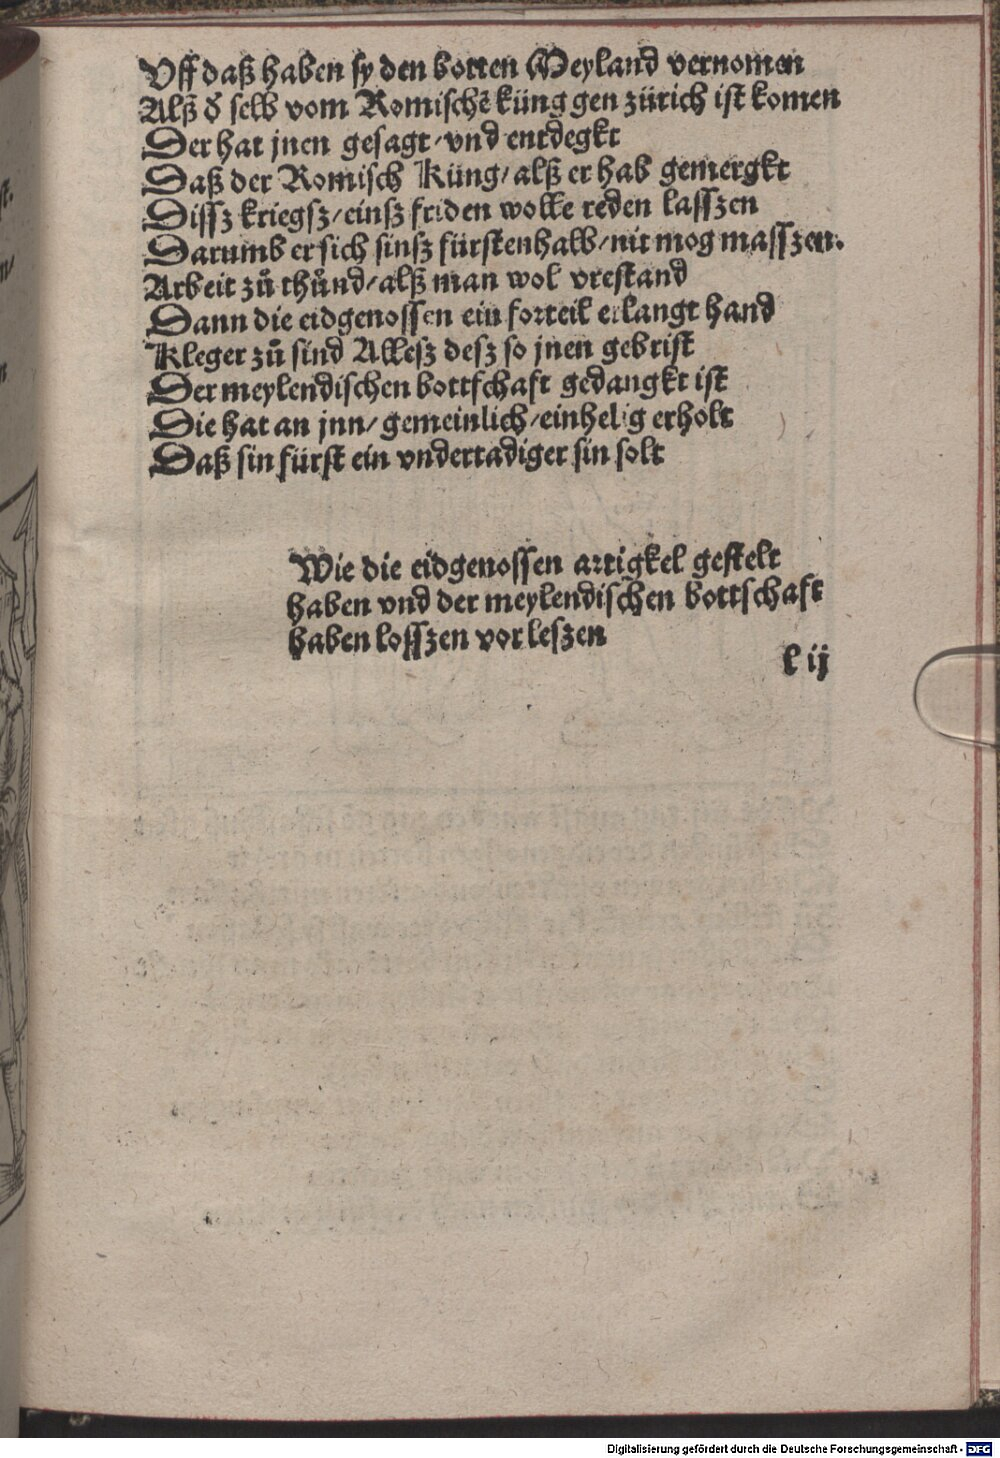 Uff daß haben sy den botten Meyland vernomen
Alß d̕ selb vom Romischē küng gen zürich ist komen
Der hat jnen gesagt / vnd entdegkt
Daß der Romisch Küng / alß er hab gemergkt
Dissz kriegsz / einsz friden wolle reden lasszen
Darumb er sich sinsz fürstenhalb / nit mog masszen.
Arbeit zů thůnd / alß man wol vrestand
Dann die eidgenossen ein forteil erlangt hand
Kleger zů sind Allesz desz so jnen gebrist
Der meylendischen bottschaft gedangkt ist
Die hat an jnn / gemeinlich / einhelig erholt
Daß sin fürst ein vndertadiger sin solt
Wie die eidgenossen artigkel gestelt
haben vnd der meylendischen bottschaft
haben losszen vor leszen
l ij
Digitalisierung gefördert durch die Deutsche Forschungsgemeinschaft - DFG